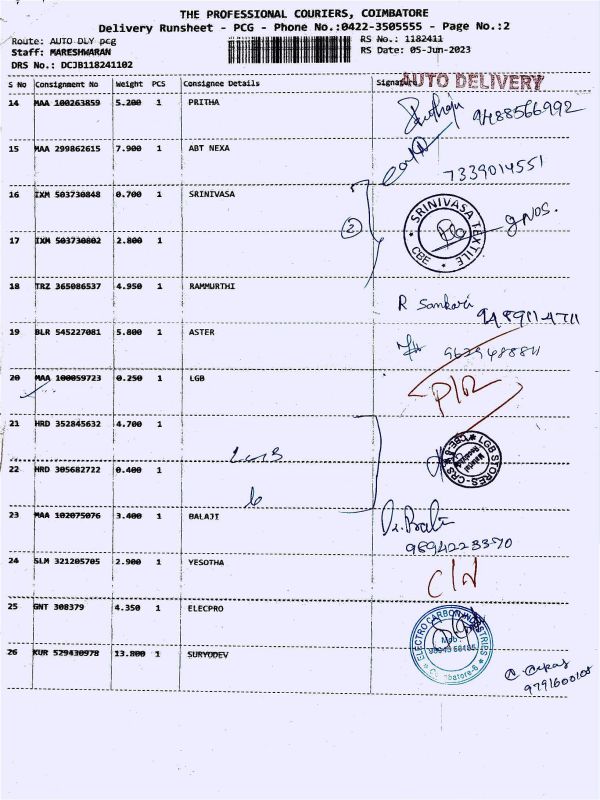 THE PROFESSIONAL COURIERS, COIMBATORE
Delivery Runsheet - PCG - Phone No.:0422-3505555 - Page No.:2
Route: AUTO DLY pcg
RS No.: 1182411
Staff: MARESHWARAN
RS Date: 05-Jun-2023
DRS No.: DCJB118241102
AUTO DELIVERY
S No Consignment No Weight PCS Consignee Details Signature
14 MAA 100263859 5.200 1 PRITHA 9488566992
15 MAA 299862615 7.900 1 ABT NEXA 7339014551
16 IXM 503730848 0.700 1 SRINIVASA
2
SRINIVASA TEXTILE * CBE *
9 NOS.
17 IXM 503730802 2.800 1
18 TRZ 365086537 4.950 1 RAMMURTHI R Sankari
19 BLR 545227081 5.800 1 ASTER
20 MAA 100059723 0.250 1 LGB
21 HRD 352845632 4.700
LGB STORES-CRS
22 HRD 305682722 0.400 1
23 MAA 102075076 3.400 1 BALAJI
9894223370
24 SLM 321205705 2.900 1 YESOTHA
25 GNT 308379 4.350 1 ELECPRO
ELECTRO CARBON INDUSTRIES
Mob
Coimbatore-6
26 KUR 529430978 13.800 1 SURYODEV
9791600108